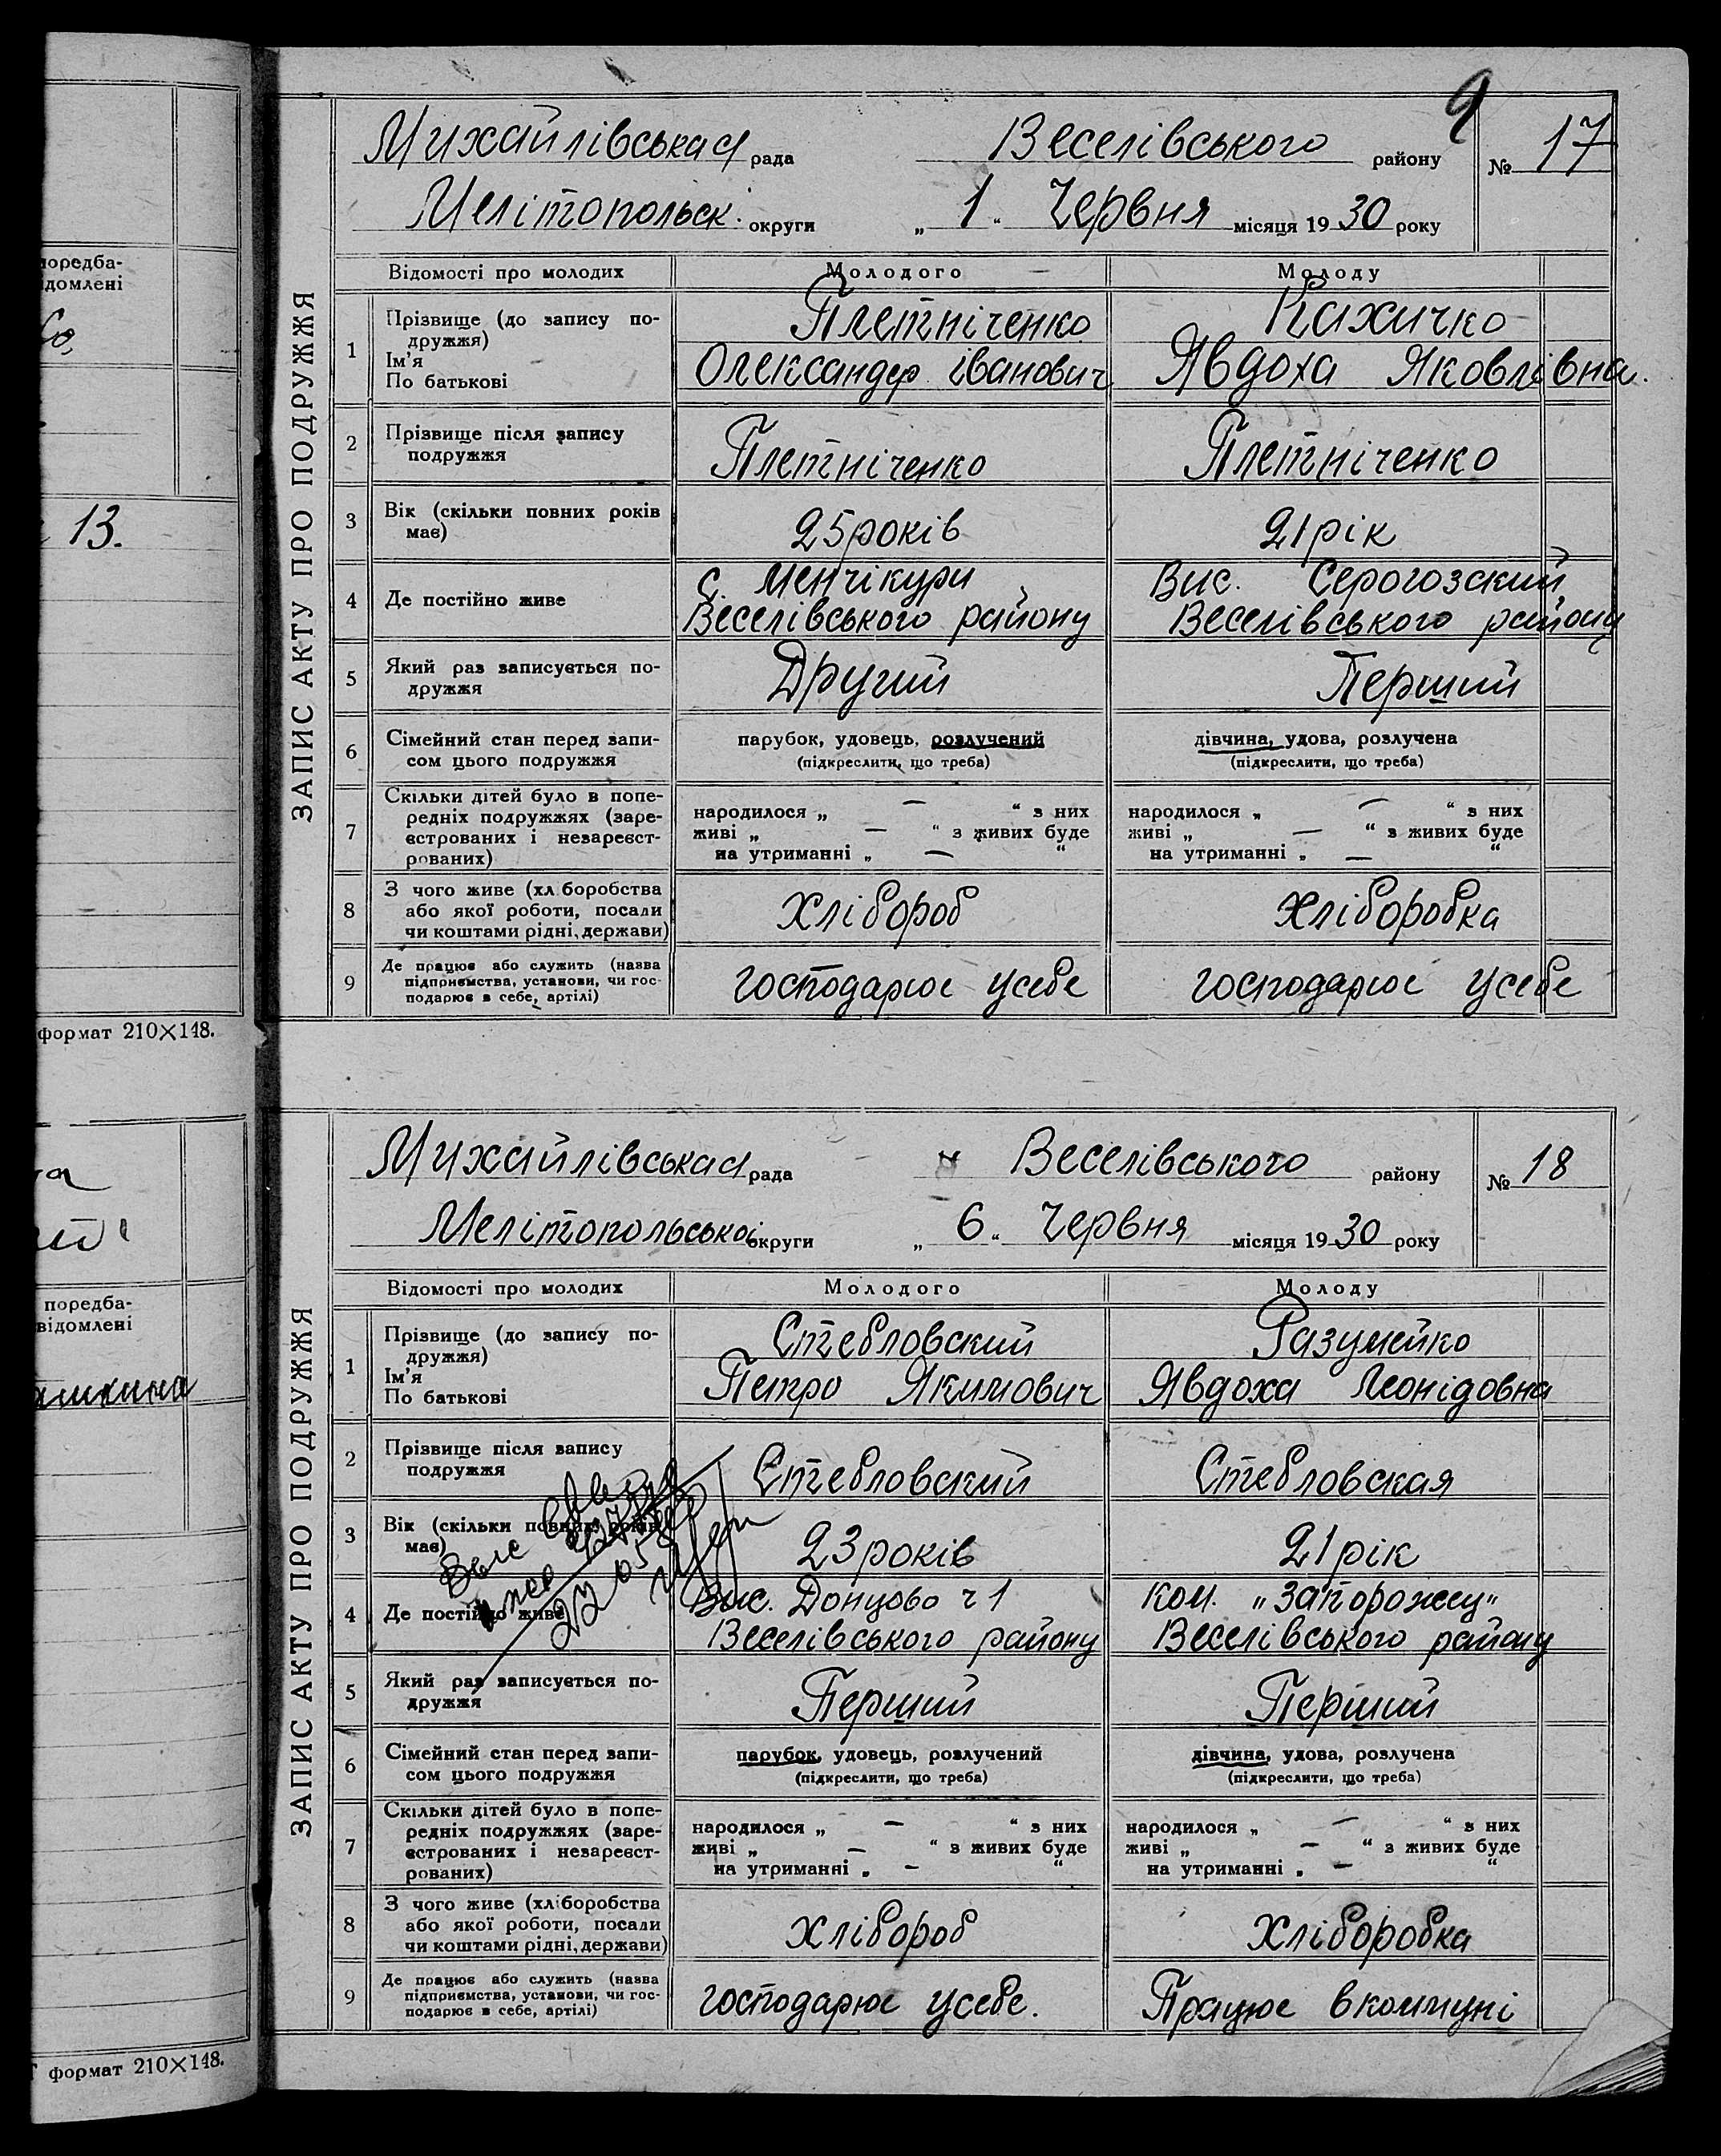 поредба-
ідомлені
13.
формат 210×148.
поредба-
відомлені
формат 210×148.
9
ЗАПИС АКТУ ПРО ПОДРУЖЖЯ
Михайлівська рада Веселівського району № 17
Мелітопольск. округи „ 1 “ Червня місяця 1930 року
Відомості про молодих Молодого Молоду
1 Прізвище (до запису по-
дружжя)
Ім'я
По батькові
Плетніченко
Олександер Іванович
Кахичко
Явдоха Яковлівна.
2 Прізвище після запису
подружжя
Плетніченко Плетніченко
3 Вік (скільки повних років
має)
25 років 21 рік
4 Де постійно живе
с. Менчікури
Веселівського району
Вис. Серогозский
Веселівського району
5 Який раз записується по-
дружжя
Другий Перший
6 Сімейний стан перед запи-
сом цього подружжя
парубок, удовець, розлучений
(підкреслити, що треба)
дівчина, удова, розлучена
(підкреслити, що треба)
7 Скільки дітей було в попе-
редніх подружжях (заре-
єстрованих і незареєст-
рованих)
народилося „ — “ з них
живі „ — “ з живих буде
на утриманні „ — “
народилося „ — “ з них
живі „ — “ з живих буде
на утриманні „ — “
8 З чого живе (хліборобства
або якої роботи, посади
чи коштами рідні, держави)
Хлібороб Хліборобка
9 Де працює або служить (назва
підприємства, установи, чи гос-
подарює в себе, артілі)
господарює усебе господарює усебе
ЗАПИС АКТУ ПРО ПОДРУЖЖЯ
Михайлівська рада Веселівського району № 18
Мелітопольської округи „ 6 “ Червня місяця 1930 року
Відомості про молодих Молодого Молоду
1 Прізвище (до запису по-
дружжя)
Ім'я
По батькові
Стебловский
Петро Якимович
Разумейко
Явдоха Леонідовна
2 Прізвище після запису
подружжя
Стебловский Стебловская
3 Вік (скільки повних років
має)
23 років 21 рік
4 Де постійно живе
Вис. Донцово ч 1
Веселівського району
Ком. „Запорожец“
Веселівського району
5 Який раз записується по-
дружжя
Перший Перший
6 Сімейний стан перед запи-
сом цього подружжя
парубок, удовець, розлучений
(підкреслити, що треба)
дівчина, удова, розлучена
(підкреслити, що треба)
7 Скільки дітей було в попе-
редніх подружжях (заре-
єстрованих і незареєст-
рованих)
народилося „ — “ з них
живі „ — “ з живих буде
на утриманні „ — “
народилося „ — “ з них
живі „ — “ з живих буде
на утриманні „ — “
8 З чого живе (хліборобства
або якої роботи, посади
чи коштами рідні, держави)
Хлібороб Хліборобка
9 Де працює або служить (назва
підприємства, установи, чи гос-
подарює в себе, артілі)
господарює усебе. Працює в коммуні